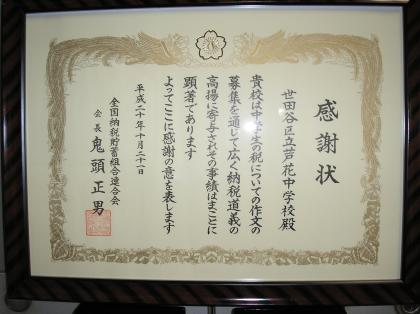 感謝状
世田谷区立芦花中学校殿
貴校は中学生の税についての作文の
募集を通じて広く納税道義の
高揚に寄与されその事績はまことに
顕著であります
よってここに感謝の意を表します
平成二十年十月二十一日
全国納税貯蓄組合連合会
会長 鬼頭正男